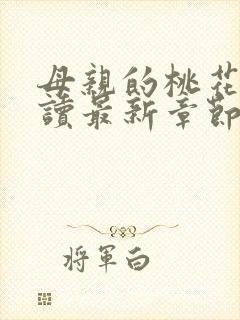 母親的桃花
讀最新章節
將軍白